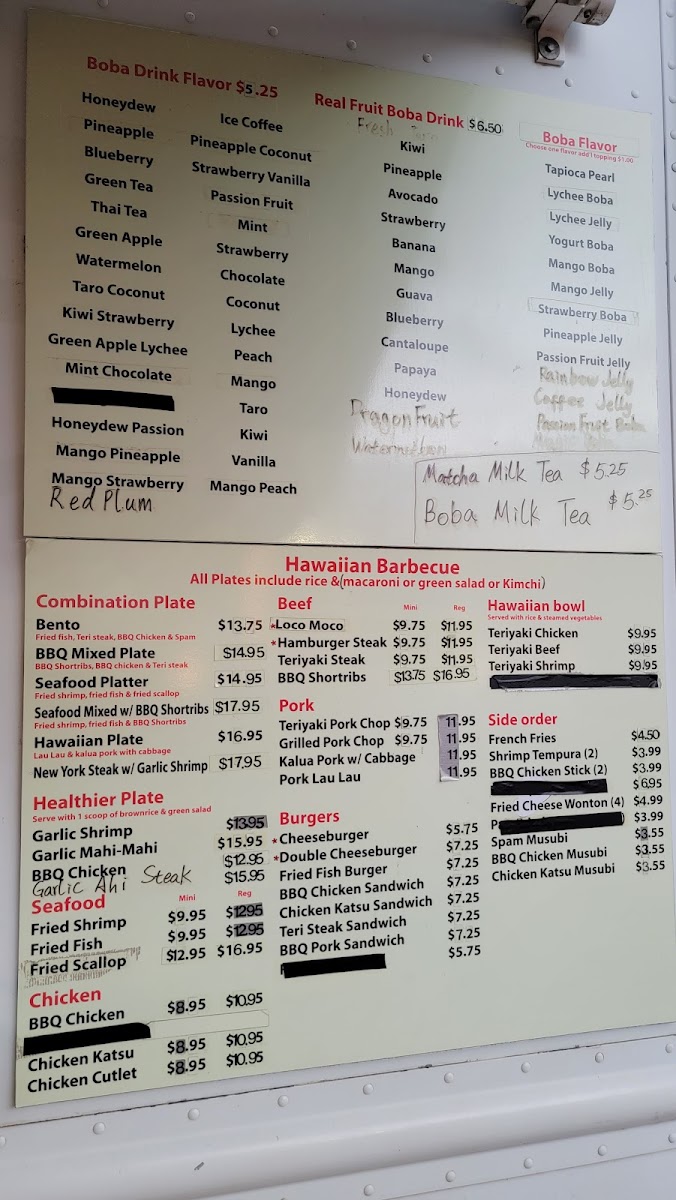 Boba Drink Flavor $5.25
Honeydew
Pineapple
Blueberry
Green Tea
Thai Tea
Green Apple
Watermelon
Taro Coconut
Kiwi Strawberry
Green Apple Lychee
Mint Chocolate
Honeydew Passion
Mango Pineapple
Mango Strawberry
Red Plum
Ice Coffee
Pineapple Coconut
Strawberry Vanilla
Passion Fruit
Mint
Strawberry
Chocolate
Coconut
Lychee
Peach
Mango
Taro
Kiwi
Vanilla
Mango Peach
Real Fruit Boba Drink $6.50
Fresh
Kiwi
Pineapple
Avocado
Strawberry
Banana
Mango
Guava
Blueberry
Cantaloupe
Papaya
Honeydew
Dragon Fruit
Watermelon
Boba Flavor
Choose one flavor add 1 topping $1.00
Tapioca Pearl
Lychee Boba
Lychee Jelly
Yogurt Boba
Mango Boba
Mango Jelly
Strawberry Boba
Pineapple Jelly
Passion Fruit Jelly
Rainbow Jelly
Coffee Jelly
Passion Fruit Boba
Matcha Milk Tea $5.25
Boba Milk Tea $5.25
Hawaiian Barbecue
All Plates include rice &(macaroni or green salad or Kimchi)
Combination Plate
Bento $13.75
Fried fish, Teri steak, BBQ Chicken & Spam
BBQ Mixed Plate $14.95
BBQ Shortribs, BBQ chicken & Teri steak
Seafood Platter $14.95
Fried shrimp, fried fish & fried scallop
Seafood Mixed w/ BBQ Shortribs $17.95
Fried shrimp, fried fish & BBQ Shortribs
Hawaiian Plate $16.95
Lau Lau & kalua pork with cabbage
New York Steak w/ Garlic Shrimp $17.95
Healthier Plate
Serve with 1 scoop of brownrice & green salad
Garlic Shrimp $13.95
Garlic Mahi-Mahi $15.95
BBQ Chicken $12.95
Garlic Ahi Steak $15.95
Seafood Mini Reg
Fried Shrimp $9.95 $12.95
Fried Fish $9.95 $12.95
Fried Scallop $12.95 $16.95
Chicken
BBQ Chicken $8.95 $10.95
Chicken Katsu $8.95 $10.95
Chicken Cutlet $8.95 $10.95
Beef Mini Reg
*Loco Moco $9.75 $11.95
*Hamburger Steak $9.75 $11.95
Teriyaki Steak $9.75 $11.95
BBQ Shortribs $13.75 $16.95
Pork
Teriyaki Pork Chop $9.75 11.95
Grilled Pork Chop $9.75 11.95
Kalua Pork w/ Cabbage 11.95
Pork Lau Lau 11.95
Burgers
*Cheeseburger $5.75
*Double Cheeseburger $7.25
Fried Fish Burger $7.25
BBQ Chicken Sandwich $7.25
Chicken Katsu Sandwich $7.25
Teri Steak Sandwich $7.25
BBQ Pork Sandwich $7.25
$5.75
Hawaiian bowl
Served with rice & steamed vegetables
Teriyaki Chicken $9.95
Teriyaki Beef $9.95
Teriyaki Shrimp $9.95
Side order
French Fries $4.50
Shrimp Tempura (2) $3.99
BBQ Chicken Stick (2) $3.99
$6.95
Fried Cheese Wonton (4) $4.99
P $3.99
Spam Musubi $3.55
BBQ Chicken Musubi $3.55
Chicken Katsu Musubi $3.55